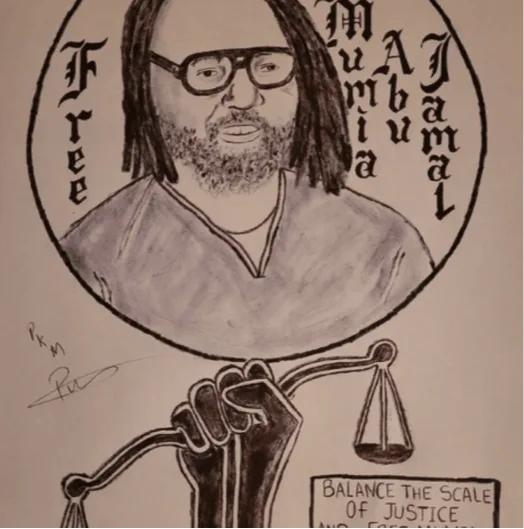 Free
Mumia
Abu
Jamal
PKM
BALANCE THE SCALE
OF JUSTICE
AND FREE